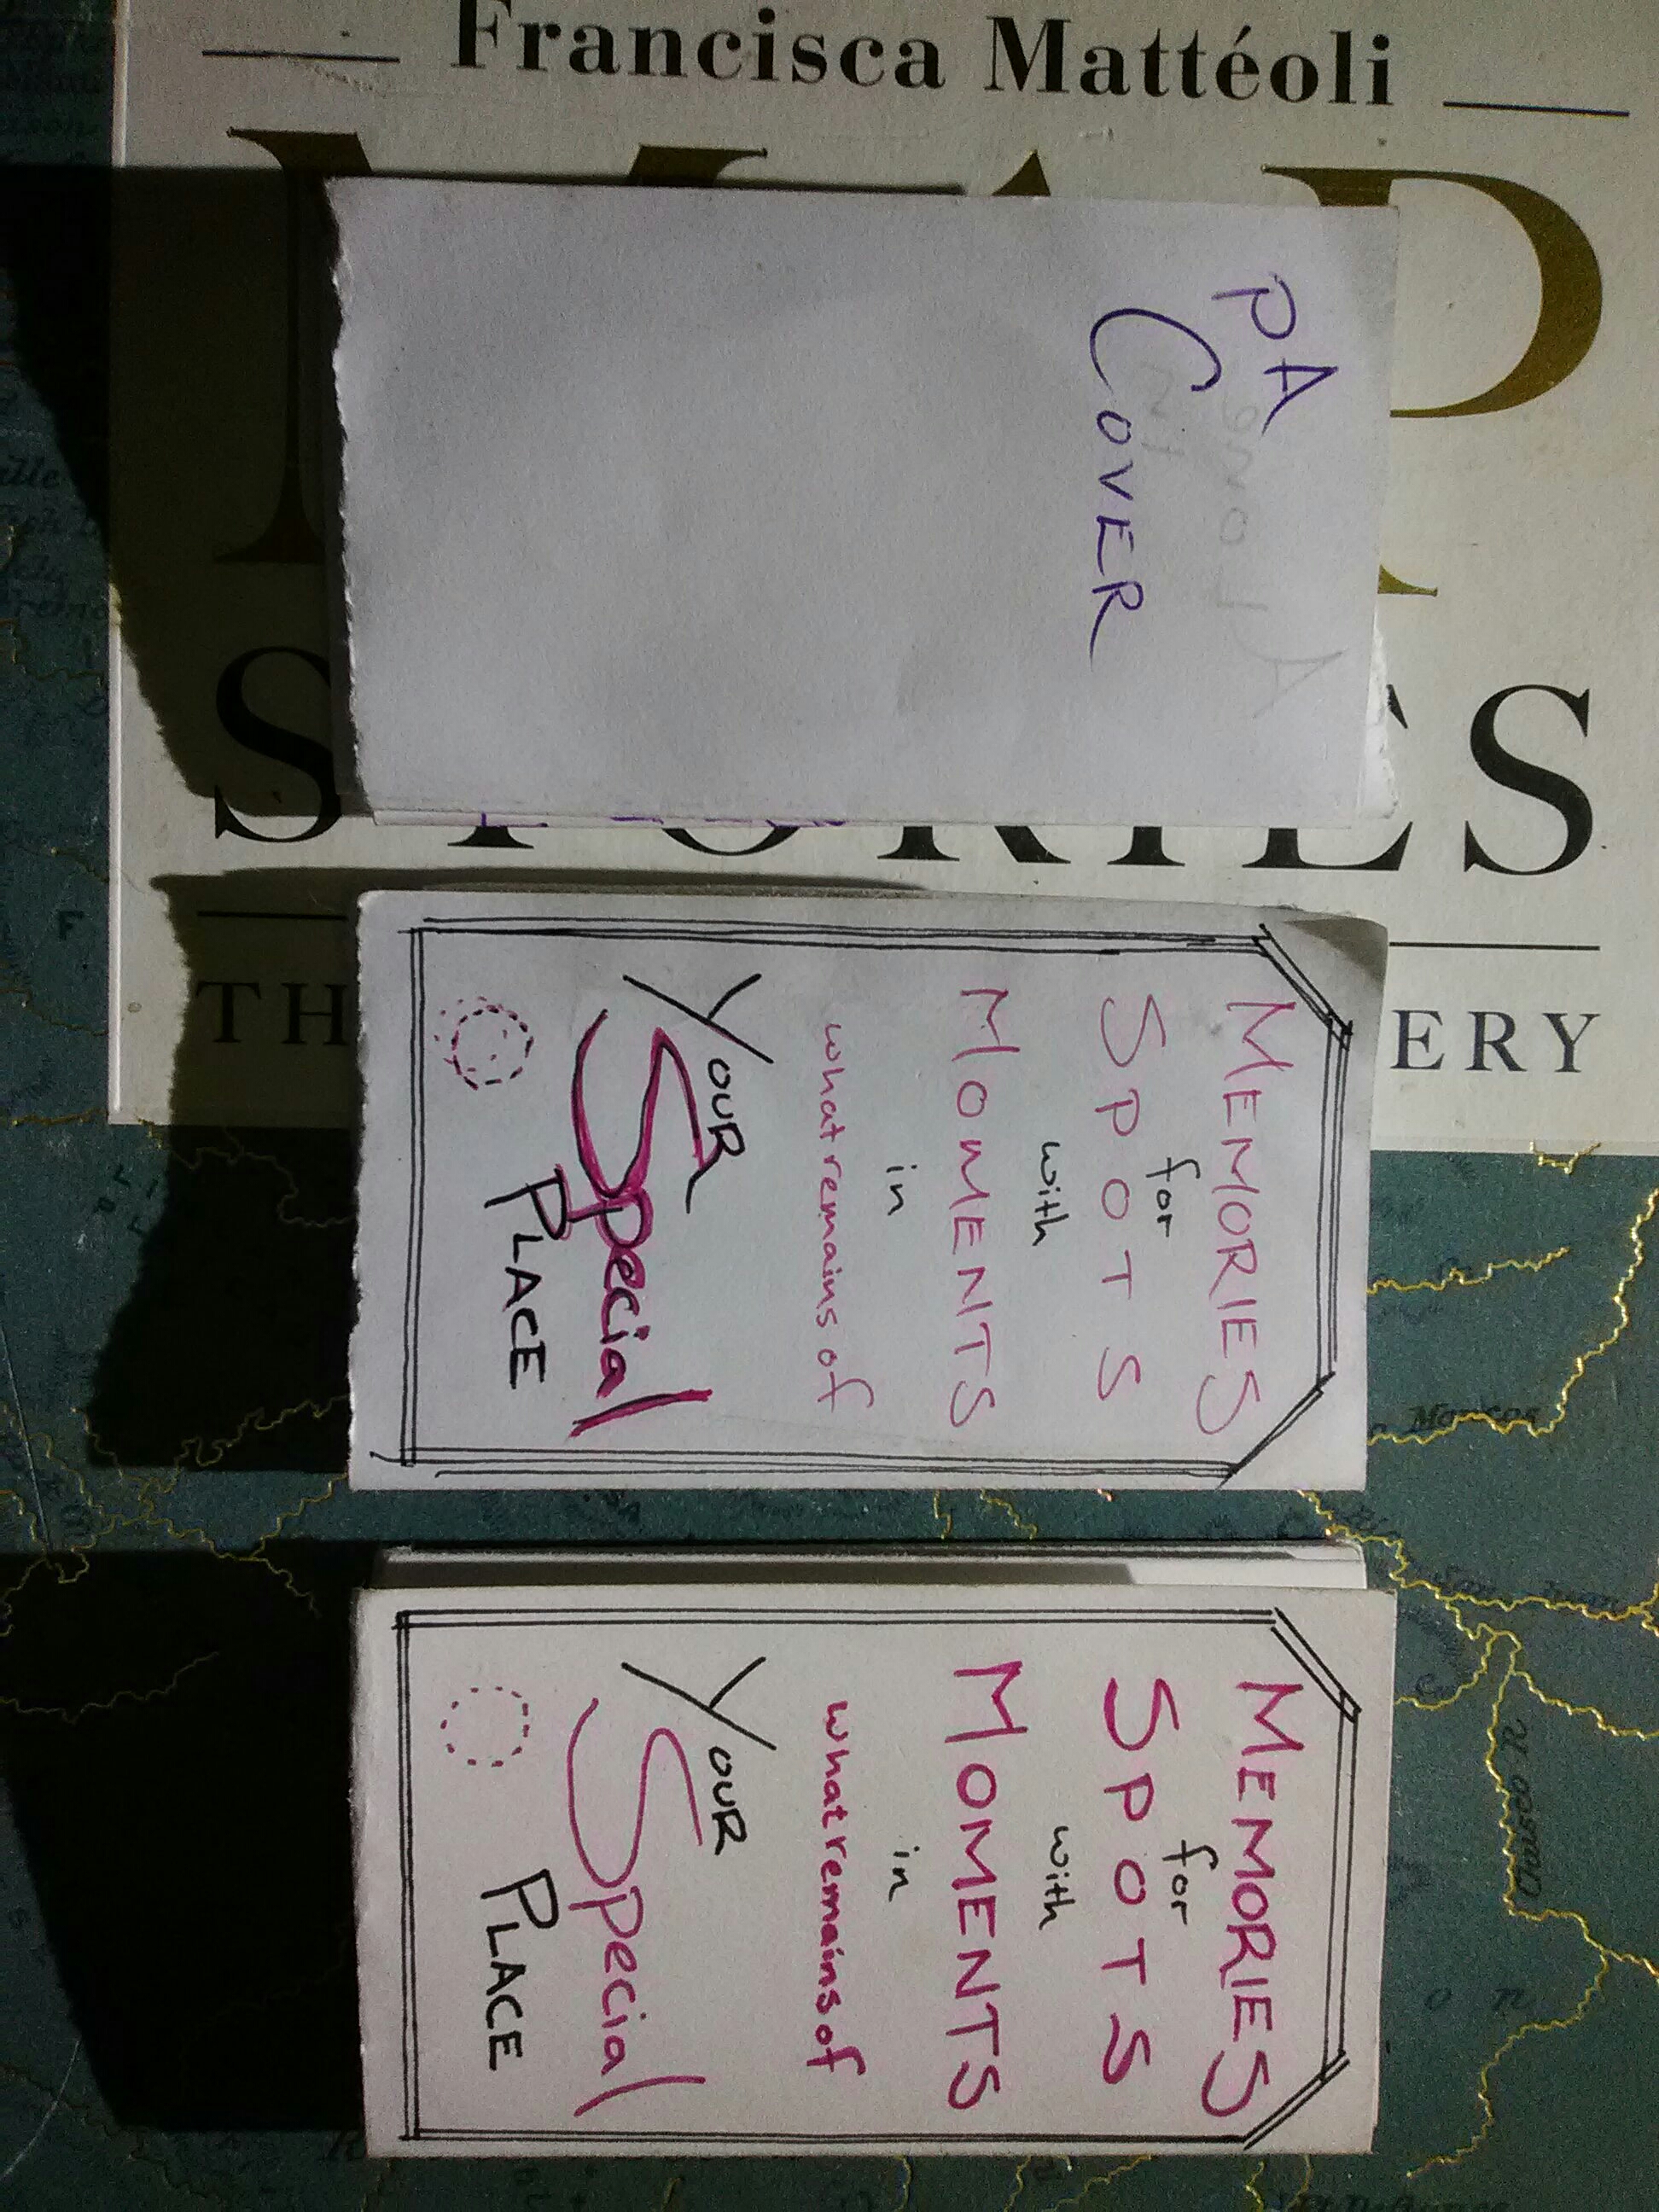 Francisca Mattéoli
STORIES
TH
ERY
PA
COVER
MEMORIES
for
SPOTS
with
MOMENTS
in
what remains of
YOUR
Special
PLACE
MEMORIES
for
SPOTS
with
MOMENTS
in
what remains of
YOUR
Special
PLACE